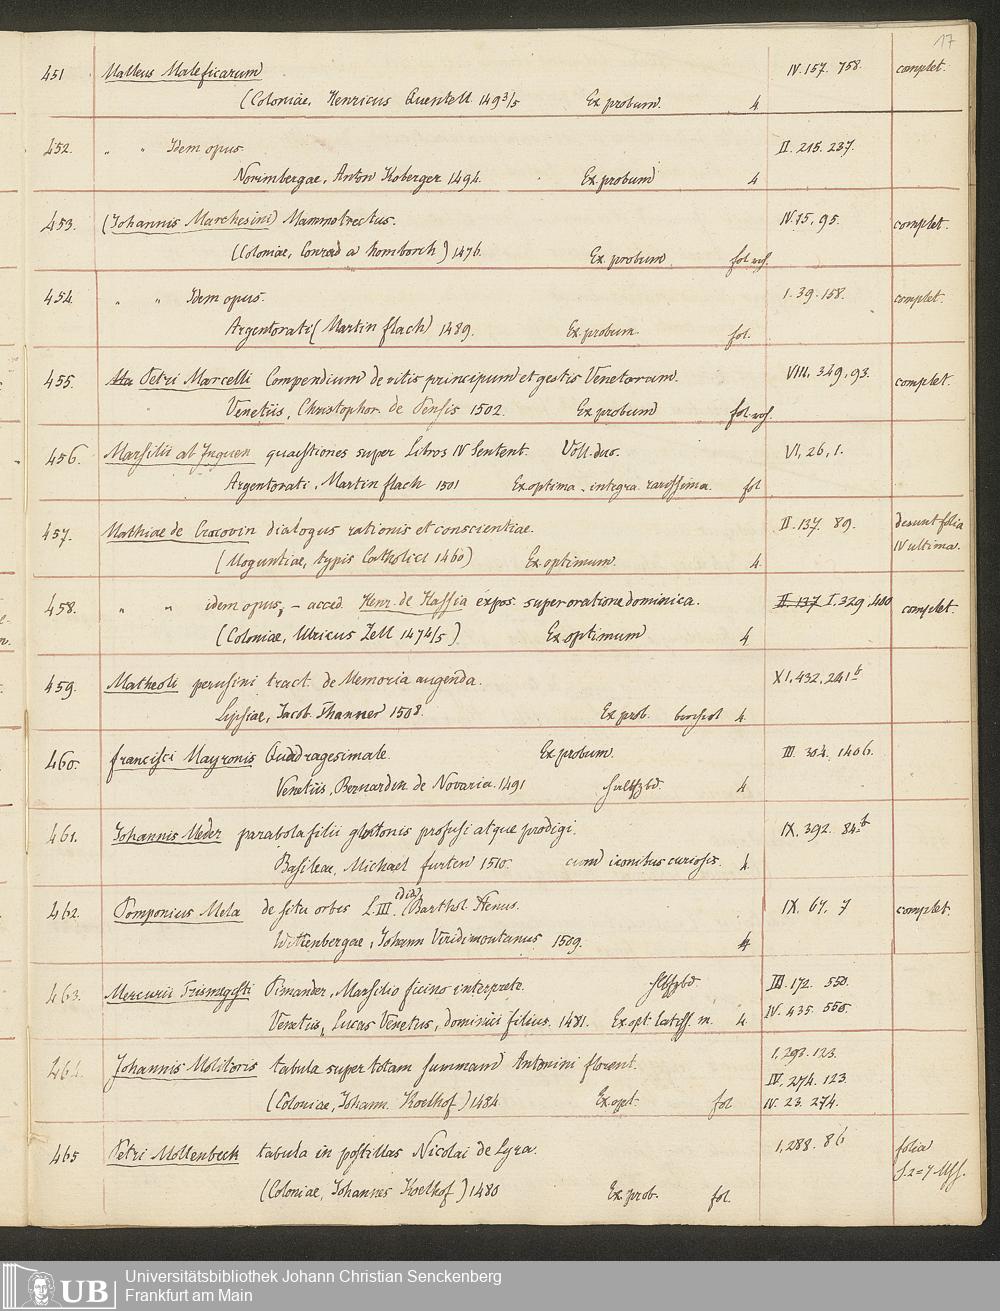 17
451 Malleus Maleficarum IV. 157. 758. complet.
(Coloniae, Henricus Quentell 1493/5 Ex probum. 4
452. " " Idem opus II. 215. 237.
Norimbergae, Anton Koberger 1494. Ex probum 4
453. (Johannis Marchesini) Mammotrectus. IV. 15, 95. complet.
(Coloniae, Conrad a homborch) 1476. Ex. probum fol.
454. " " Idem opus. I. 39. 158. complet.
Argentorati (Martin flach) 1489. Ex. probum. fol.
455. Petri Marcelli Compendium de vitis principum et gestis Venetorum. VIII. 349, 93. complet.
Venetiis, Christophor. de Pensis 1502. Ex probum fol.
456. Marsilii ab Inguen quaestiones super Libros IV Sentent. Voll. duo. VI, 26, 1.
Argentorati, Martin flach 1501 Ex optima - integra rarissima fol
457. Mathiae de Cracovin dialogus rationis et conscientiae. II. 137. 89. desunt folia
(Moguntiae, typis Catholici 1460) Ex optimum. 4 IV ultima.
458. " " idem opus, - acced. Henr. de Hassia expos. super oratione dominica. II. 137 I. 329. 400 complet.
(Coloniae, Ulricus Zell 1474/5) Ex optimum 4
459. Matheoli perusini tract. de Memoria augenda. XI, 432, 241b
Lipsiae, Jacob Thanner 1508. Ex prob. 4.
460. francisci Mayronis Quadragesimale. Ex probum. III. 304. 1406.
Venetiis, Bernardin de Novaria. 1491 4
461. Johannis Meder parabola filii glutonis profusi atque prodigi. IX. 392. 84b
Basileae, Michael furten 1510. cum iconibus curiosis. 4.
462. Pomponius Mela de situ orbis L. III. (Barthol. Stenus. IX. 67. 7 complet.
Wittenbergae, Johann Viridimontanus 1509. 4
463. Mercurii Trismegisti Pimander, Marsilio ficino interprete. III. 172. 550.
Venetiis, Lucas Venetus, dominici filius. 1481. Ex opt. latiss. m. 4. IV. 435. 550.
464. Johannis Molitoris tabula super totam summam Antonini florent. I, 292. 123.
IV, 274. 123.
(Coloniae, Johann. Koelhof) 1484. Ex opt. fol IV. 23. 274.
465 Petri Mollenbeck tabula in postillas Nicolai de Lyra. I, 288. 86 folia
(Coloniae, Johannes Koelhof) 1480 Ex prob. fol.
UB Universitätsbibliothek Johann Christian Senckenberg
Frankfurt am Main